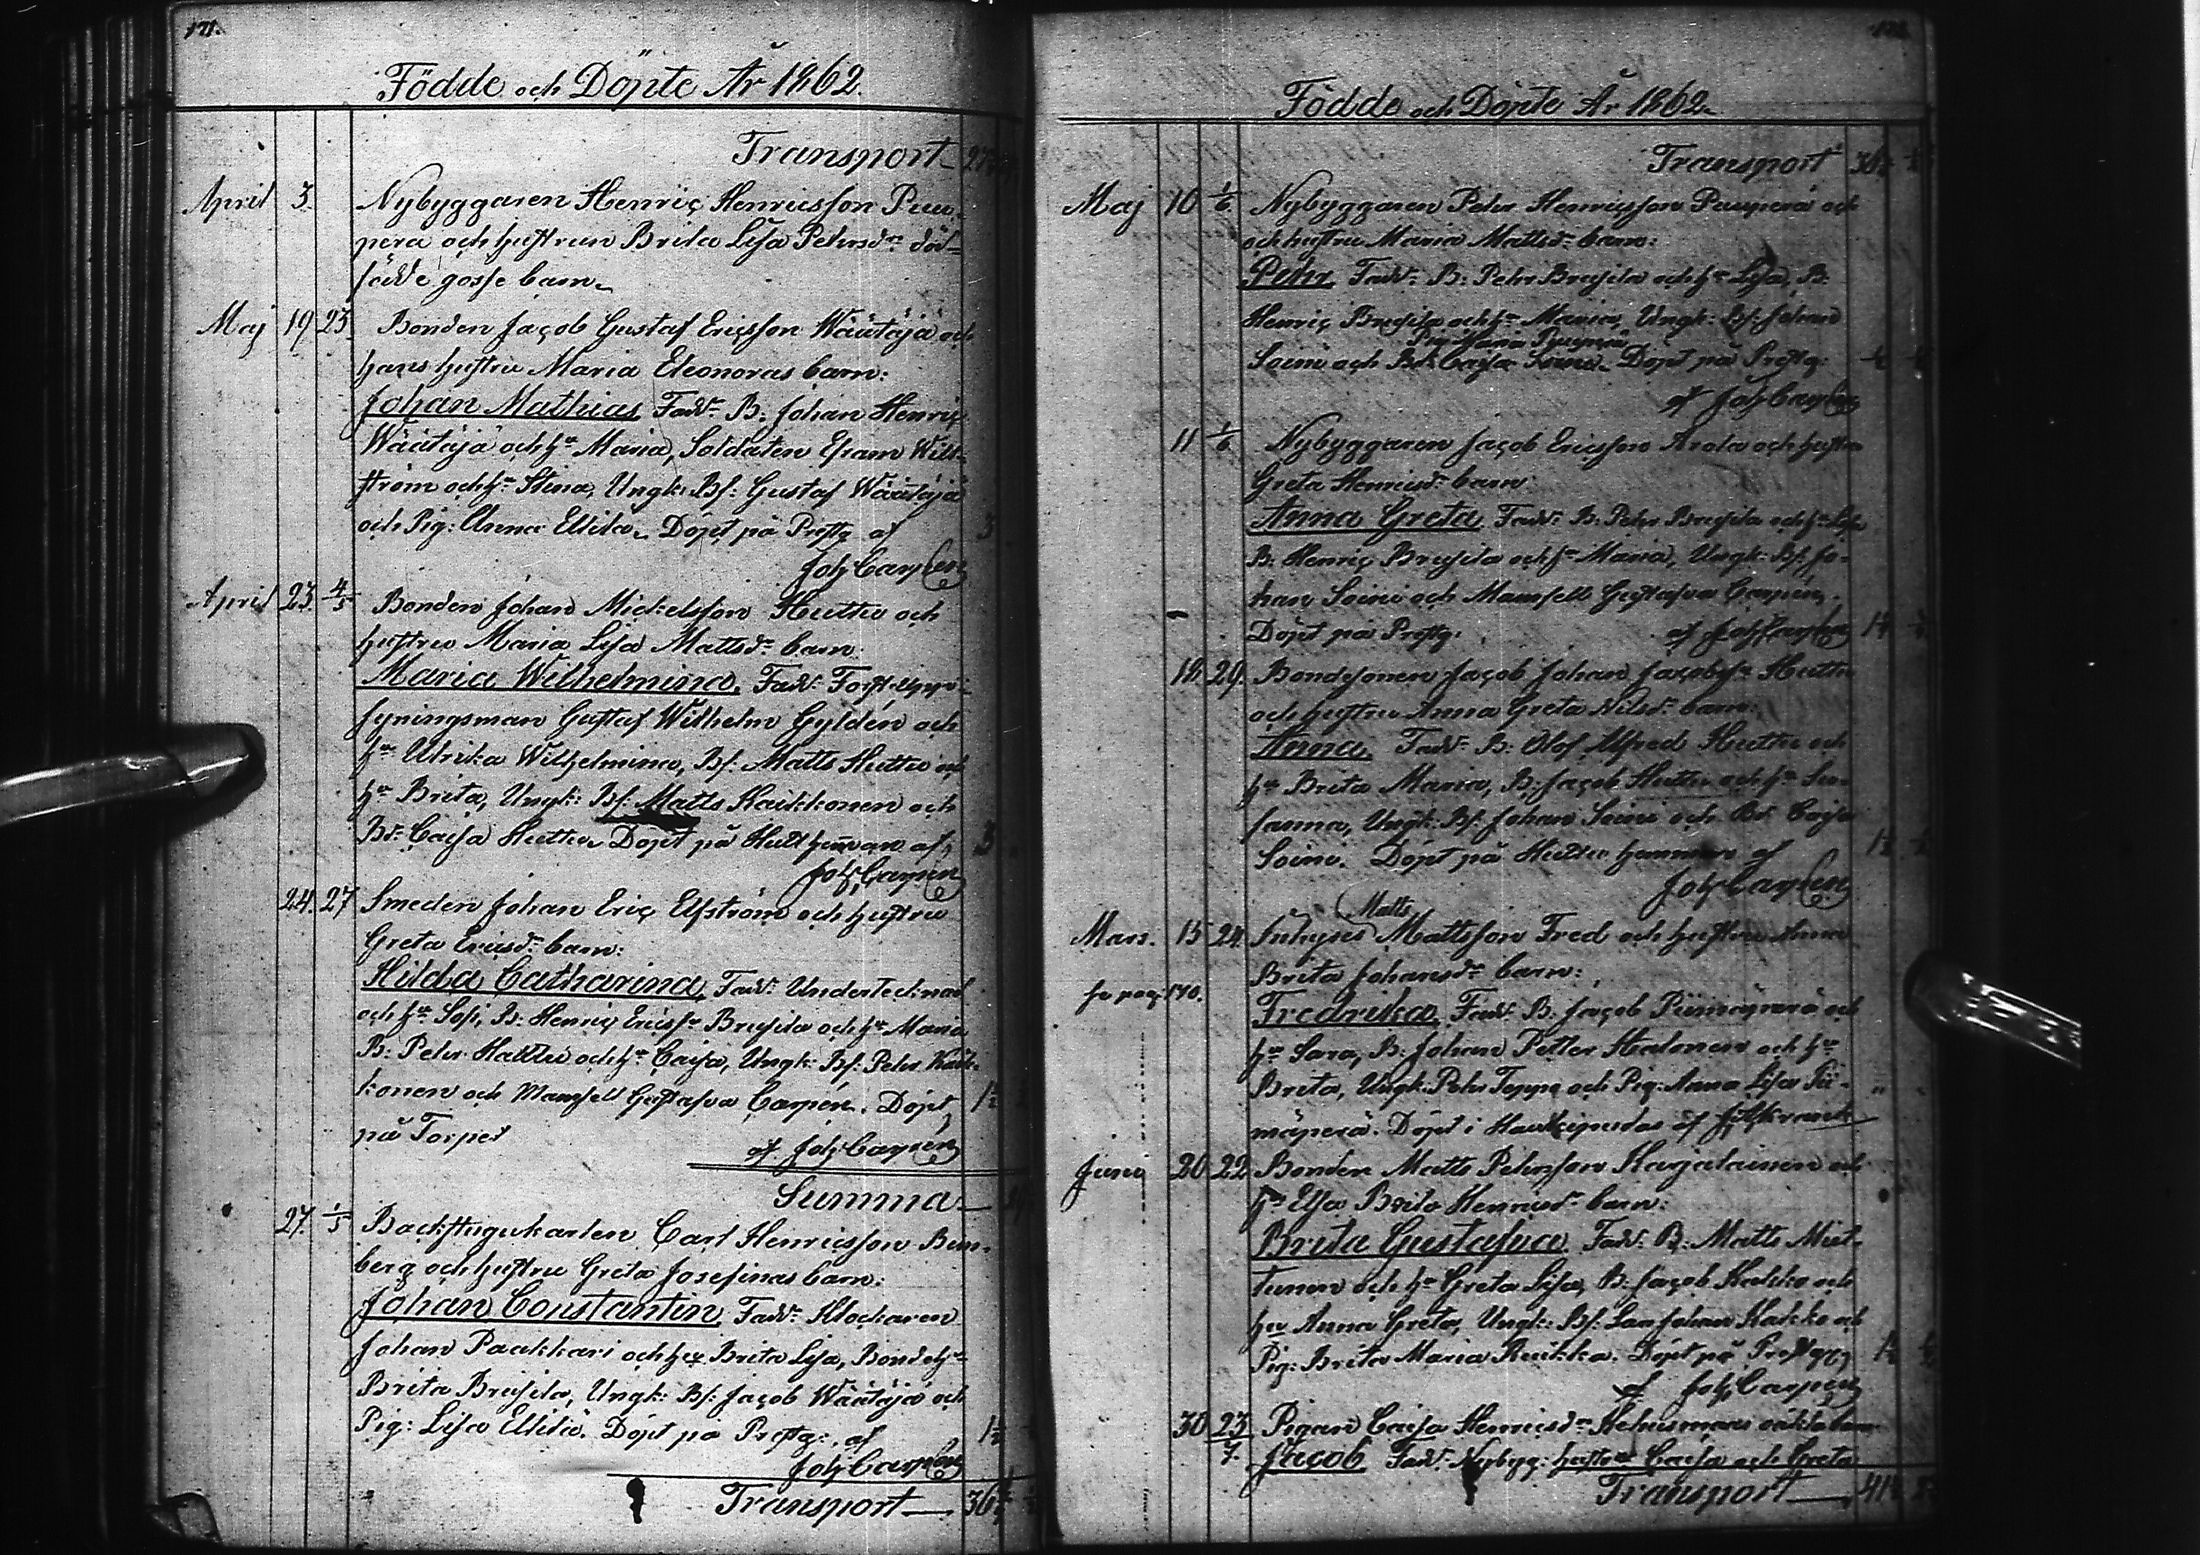 171.
Födde och Döpte År 1862
Transport
April 3. Nybyggaren Henric Henricsson Pum-
pera och hustrun Brita Lisa Pehrsdr död-
födde gosse barn.
Maj 19 23 Bonden Jacob Gustaf Ericsson Wäätäjä och
hans hustru Maria Eleonoras barn:
Johan Mathias Fadd: B: Johan Henric
Wäätäjä och hu Maria, Soldaten Efram Wild-
ström och hu Stina, Ungk: Bs: Gustaf Wäätäjä
och Pig: Anna Ellilä. Döpt på Prestg af 3
Joh Carpén
April 23. 4/5 Bonden Johan Mickelsson Huttu och
hustru Maria Lisa Mattsdr barn:
Maria Wilhelmina, Fadd: Forst uppsy-
syningsman Gustaf Wilhelm Gyldén och
hu Ulrika Wilhelmina, Bs: Matts Huttu och
hu Brita, Ungk: Bs: Matts Kaikkonen och
Bd: Cajsa Huttu. Döpt på Hutt heman af 3
Joh Carpén
24. 27 Smeden Johan Eric Elfström och hustru
Greta Ericsdr barn:
Hilda Catharina, Fadd: Undertecknad
och hu Sofi, B: Henric Ericss Brusila och hu Maria
B: Pehr Huttu och hu Cajsa, Ungk: Bs: Pehr Kaik-
konen och Mamsell Gustafva Carpén. Döpt 1½
på Torpet af Joh Carpén
Summa
27. 1/5 Backstugukarlen Carl Henricsson Bun-
berg och hustru Greta Josefinas barn:
Johan Constantin, Fadd: Klockaren
Johan Paakkari och hu Brita Lisa, Bondeh:
Brita Brusila, Ungk: Bs: Jacob Wäätäjä och
Pig: Lisa Ellilä. Döpt på Prestg: af 1½
Joh Carpén
Transport 36
Födde och Döpte År 1862
Transport
Maj 10 1/6 Nybyggaren Pehr Henricsson Pumperä och
och hustru Maria Mattsdr barn:
Pehr Fadd: B: Pehr Brusila och hu Lisa, B:
Henric Brusila och hu Maria, Ungk: Bs: Johan
Soini och Bd: Cajsa Soini. Döpt på Prestg:
af Joh Carpén
11 1/6 Nybyggaren Jacob Ericsson Arola och hustru
Greta Henricsdr barn
Anna Greta Fadd: B: Pehr Brusila och hu Lisa
B: Henric Brusila och hu Maria, Ungk: Bs: Jo-
han Soini och Mamsell Gustafva Carpén.
Döpt på Prestg: af Joh Carpén
18 29. Bondesonen Jacob Johan Jacobss Huttu
och hustru Anna Greta Nilsdr barn:
Anna, Fadd: B: Olof Alfred Huttu och
hu Brita Maria, B: Jacob Huttu och hu Su-
sanna, Ungk: Bs: Johan Soini och Bd: Cajsa
Soini. Döpt på Huttu hemman af 1½
Joh Carpén
Matts
Mars. 15 24. Inhyses Mattsson Fred och hustru Anna
Brita Johansdr barn:
fr pag: 170. Fredrika, Fadd: B. Jacob Piimäperä och
hu Sara, B: Johan Petter Halonen och hu
Brita, Ungk: Pehr Toppe och Pig: Anna Lisa Pii-
mäperä. Döpt i Haukipudas af
Juni 20 22 Bonden Matts Pehrsson Karjalainen och
hu Elsa Brita Henricsdr barn:
Brita Gustafva, Fadd: B: Matts Miet-
tunen och hu Greta Lisa, B: Jacob Kakko och
hu Anna Greta, Ungk: Bs: Lars Johan Kakko och
Pig: Brita Maria Ruikka. Döpt på Prestg:
af Joh Carpén
30 23/7. Pigan Cajsa Henricsdr Hehusmaas oäkta barn
Jacob Fadd: Nybyg: hustr Cajsa och Greta
Transport